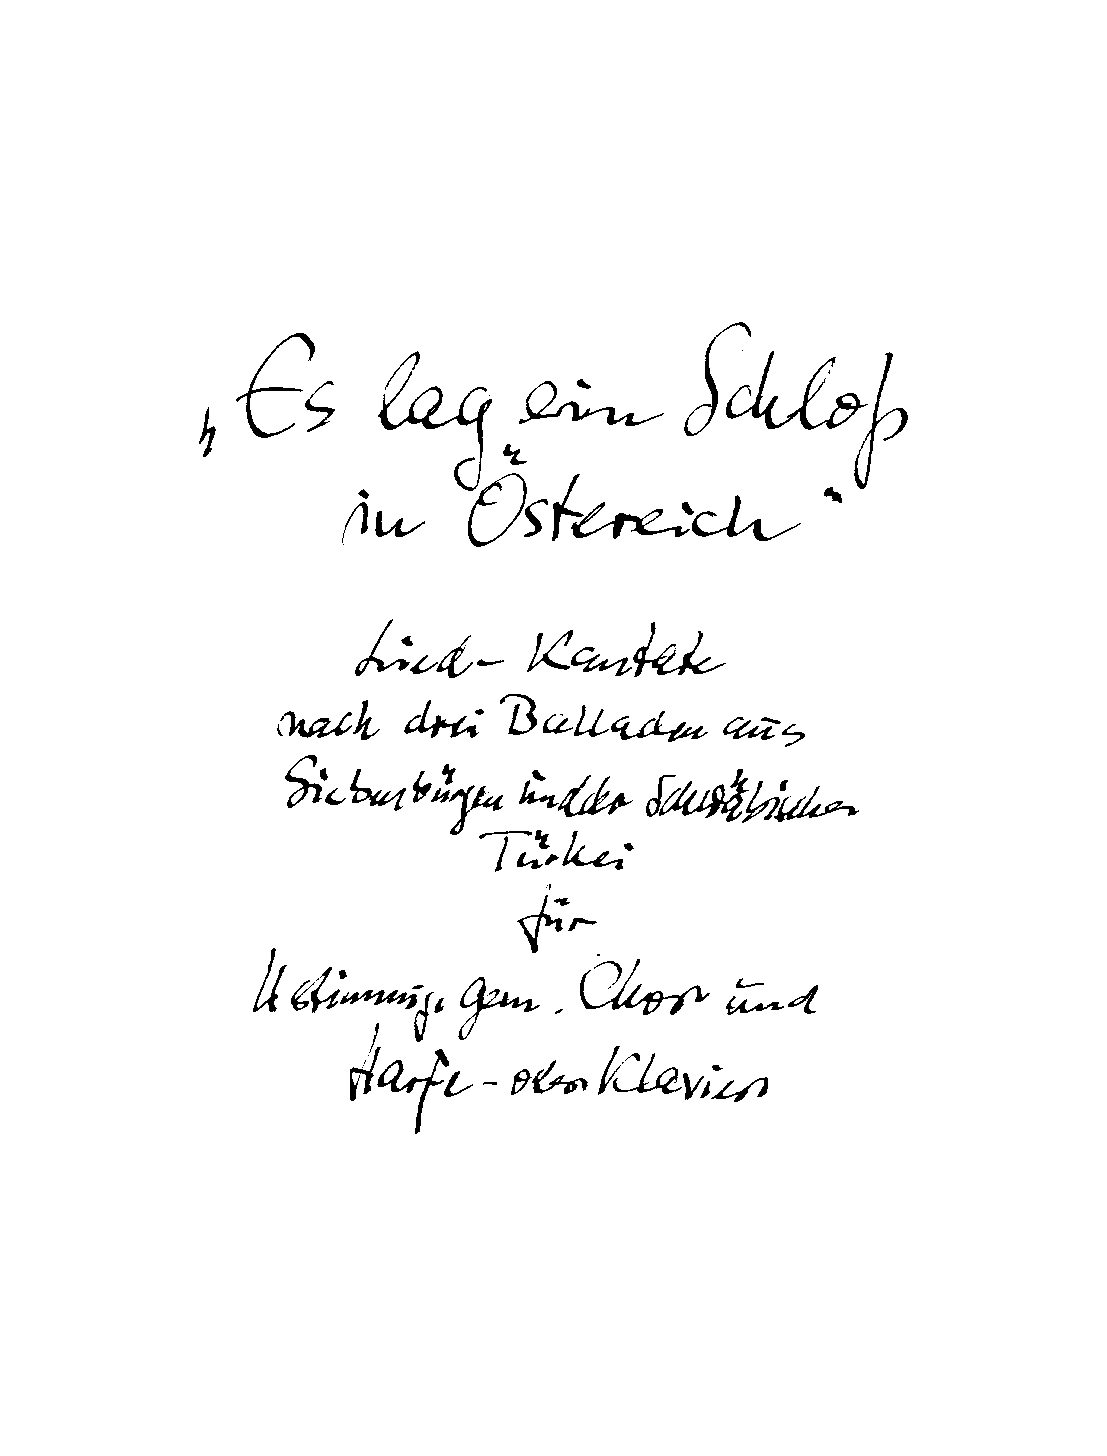 „Es lag ein Schloß
in Östereich"
Lied-Kantate
nach drei Balladen aus
Siebenbürgen und der Schwäbischen
Türkei
für
4stimmig. gem. Chor und
Harfe - oder Klavier